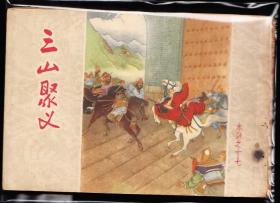 三山聚义
水浒之十七